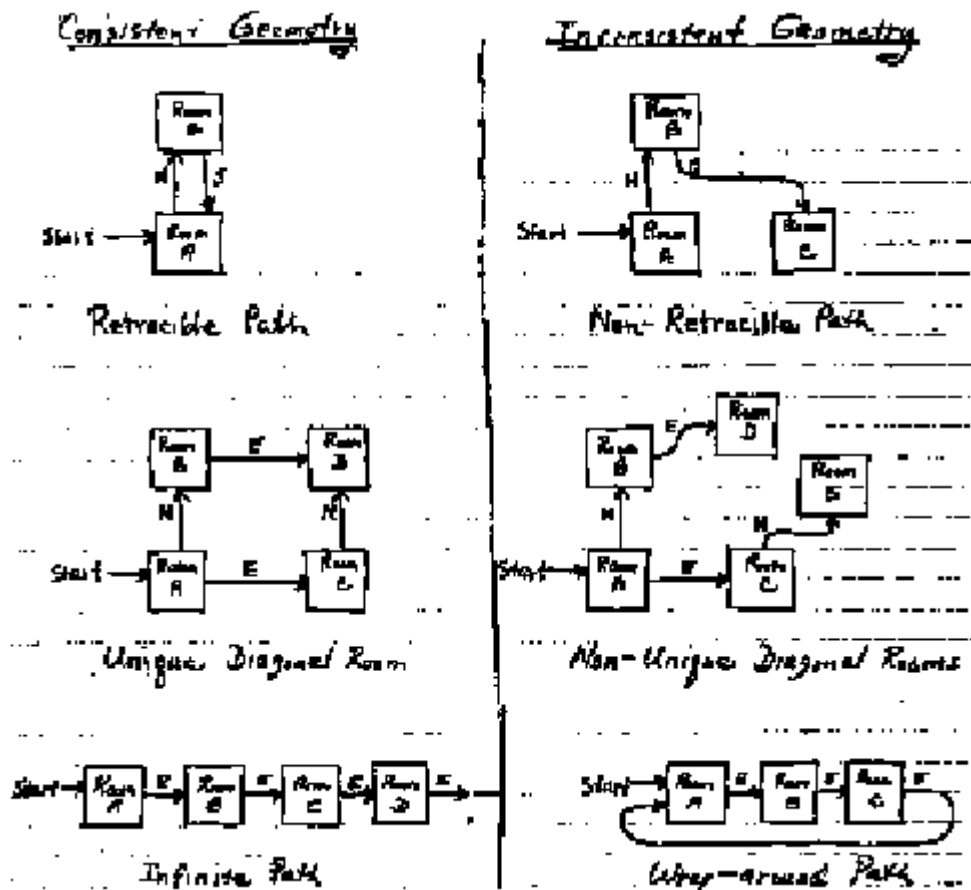 Consistent Geometry
Room
B
N
S
Start
Room
A
Retracible Path
Room
B
E
Room
D
N
N
Start
Room
A
E
Room
C
Unique Diagonal Room
Start
Room
A
E
Room
B
E
Room
C
E
Room
D
E
Infinite Path
Inconsistent Geometry
Room
B
N
S
Start
Room
A
Room
C
Non-Retracible Path
Room
B
E
Room
D
N
Room
N
Start
Room
A
E
Room
C
Non-Unique Diagonal Rooms
Start
Room
A
E
Room
B
E
Room
C
E
Wrap-around Path